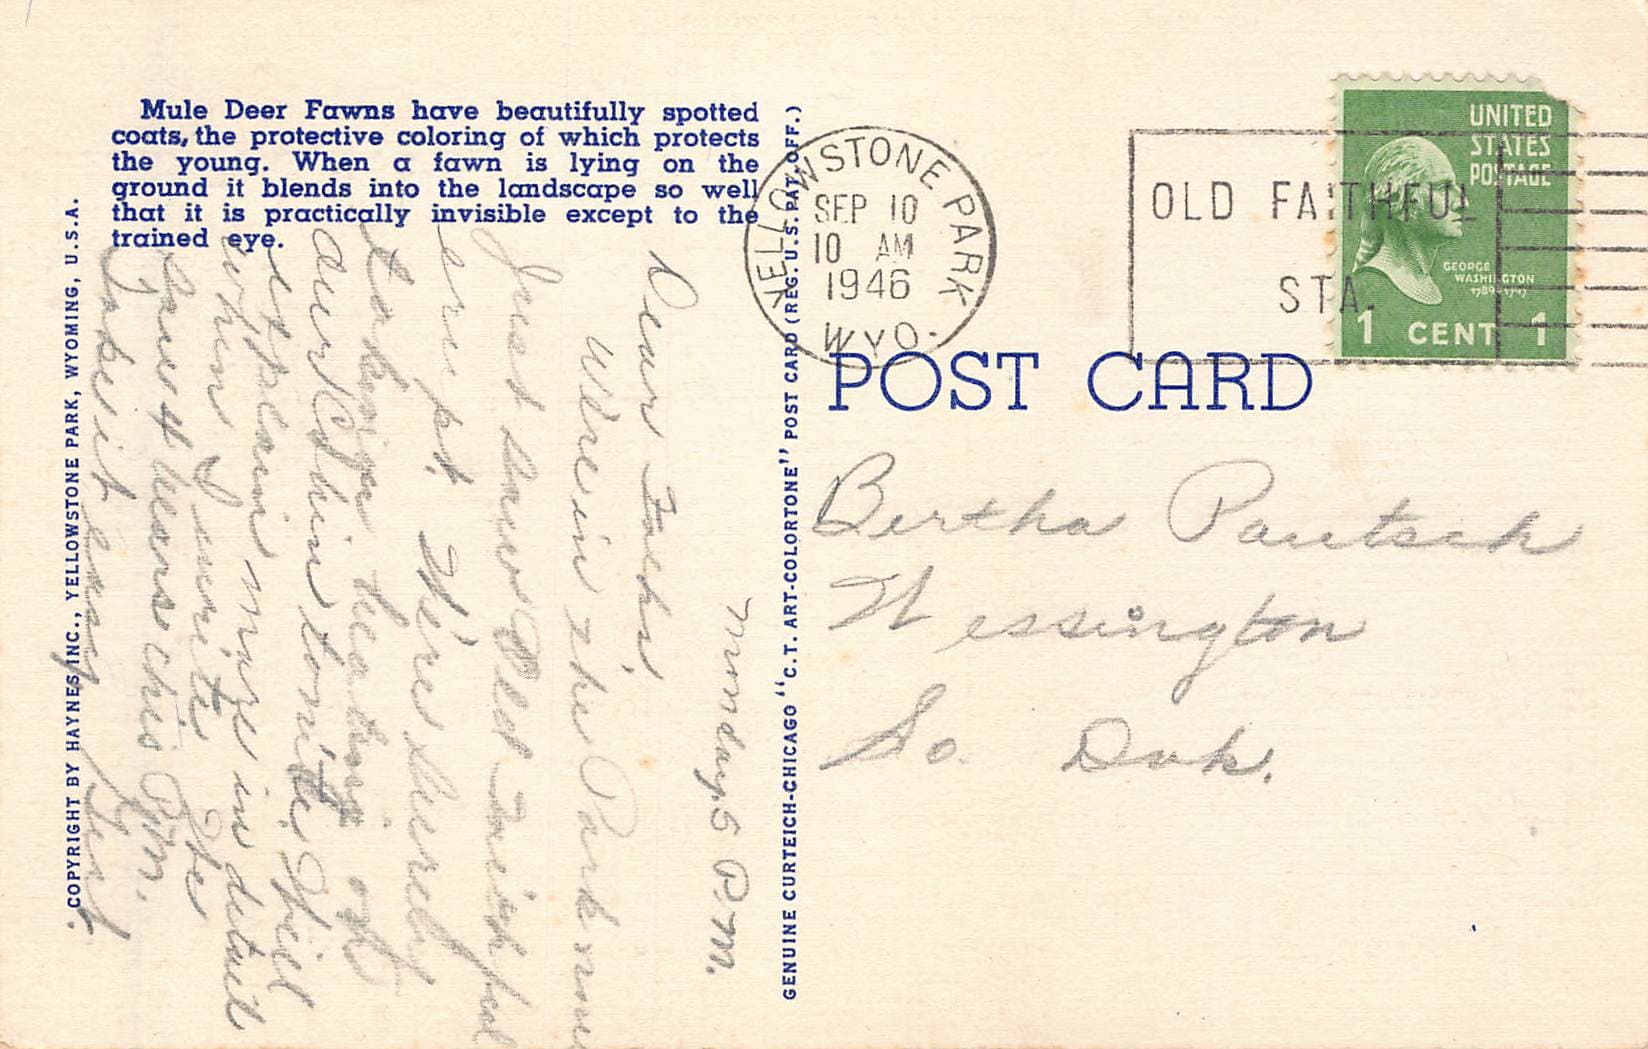 Mule Deer Fawns have beautifully spotted
coats, the protective coloring of which protects
the young. When a fawn is lying on the
ground it blends into the landscape so well
that it is practically invisible except to the
trained eye.
COPYRIGHT BY HAYNES INC., YELLOWSTONE PARK, WYOMING, U.S.A.
Monday 5 P.M.
Dear Folks
Were in the Park now
Just saw Old Faithful
erupt. We're surely
taking
our Cabin tonite. Will
explain more in detail
when I write. We
saw 4 bears this P.M.
Take it easy
GENUINE CURTEICH-CHICAGO "C.T. ART-COLORTONE" POST CARD (REG. U.S. PAT. OFF.)
YELLOWSTONE PARK
SEP 10
10 AM
1946
WYO.
OLD FAITHFUL
STA.
UNITED
STATES
POSTAGE
GEORGE
WASHINGTON
1789-1797
1 CENT 1
POST CARD
Bertha Pautsch
Wessington
So. Dak.